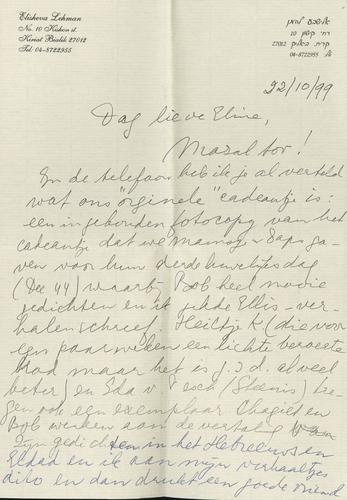 Elisheva Lehman
No. 10 Kishon st.
Kiriat Bialik 27012
Tel. 04-8722955
אלישבע להמן
רח' קישון 10
קרית ביאליק 27012
טל. 04-8722955
22/10/99
Dag lieve Eline,
Mazal tov!
In de telefoon heb ik je al verteld
wat ons "orginele" cadeautje is:
een ingebonden fotocopy van het
cadeautje dat we Mamsje & Paps ga-
ven voor hun derde huwelijksdag
(Dec 44) waarbij Bob heel mooie
gedichten en ik Ellis - ver-
halen schreef. Heiltje K (die voor
een paar weken een lichte beroerte
had maar het is g.z.d. al veel
beter) en Ida v Esch / kre-
gen ook een exemplaar. Chagiet en
Bob werken aan de vertaling van
zijn gedichten in het Hebreeuws en
Eldad en ik aan mijn verhaaltjes
dito en dan drukt een goede vriend